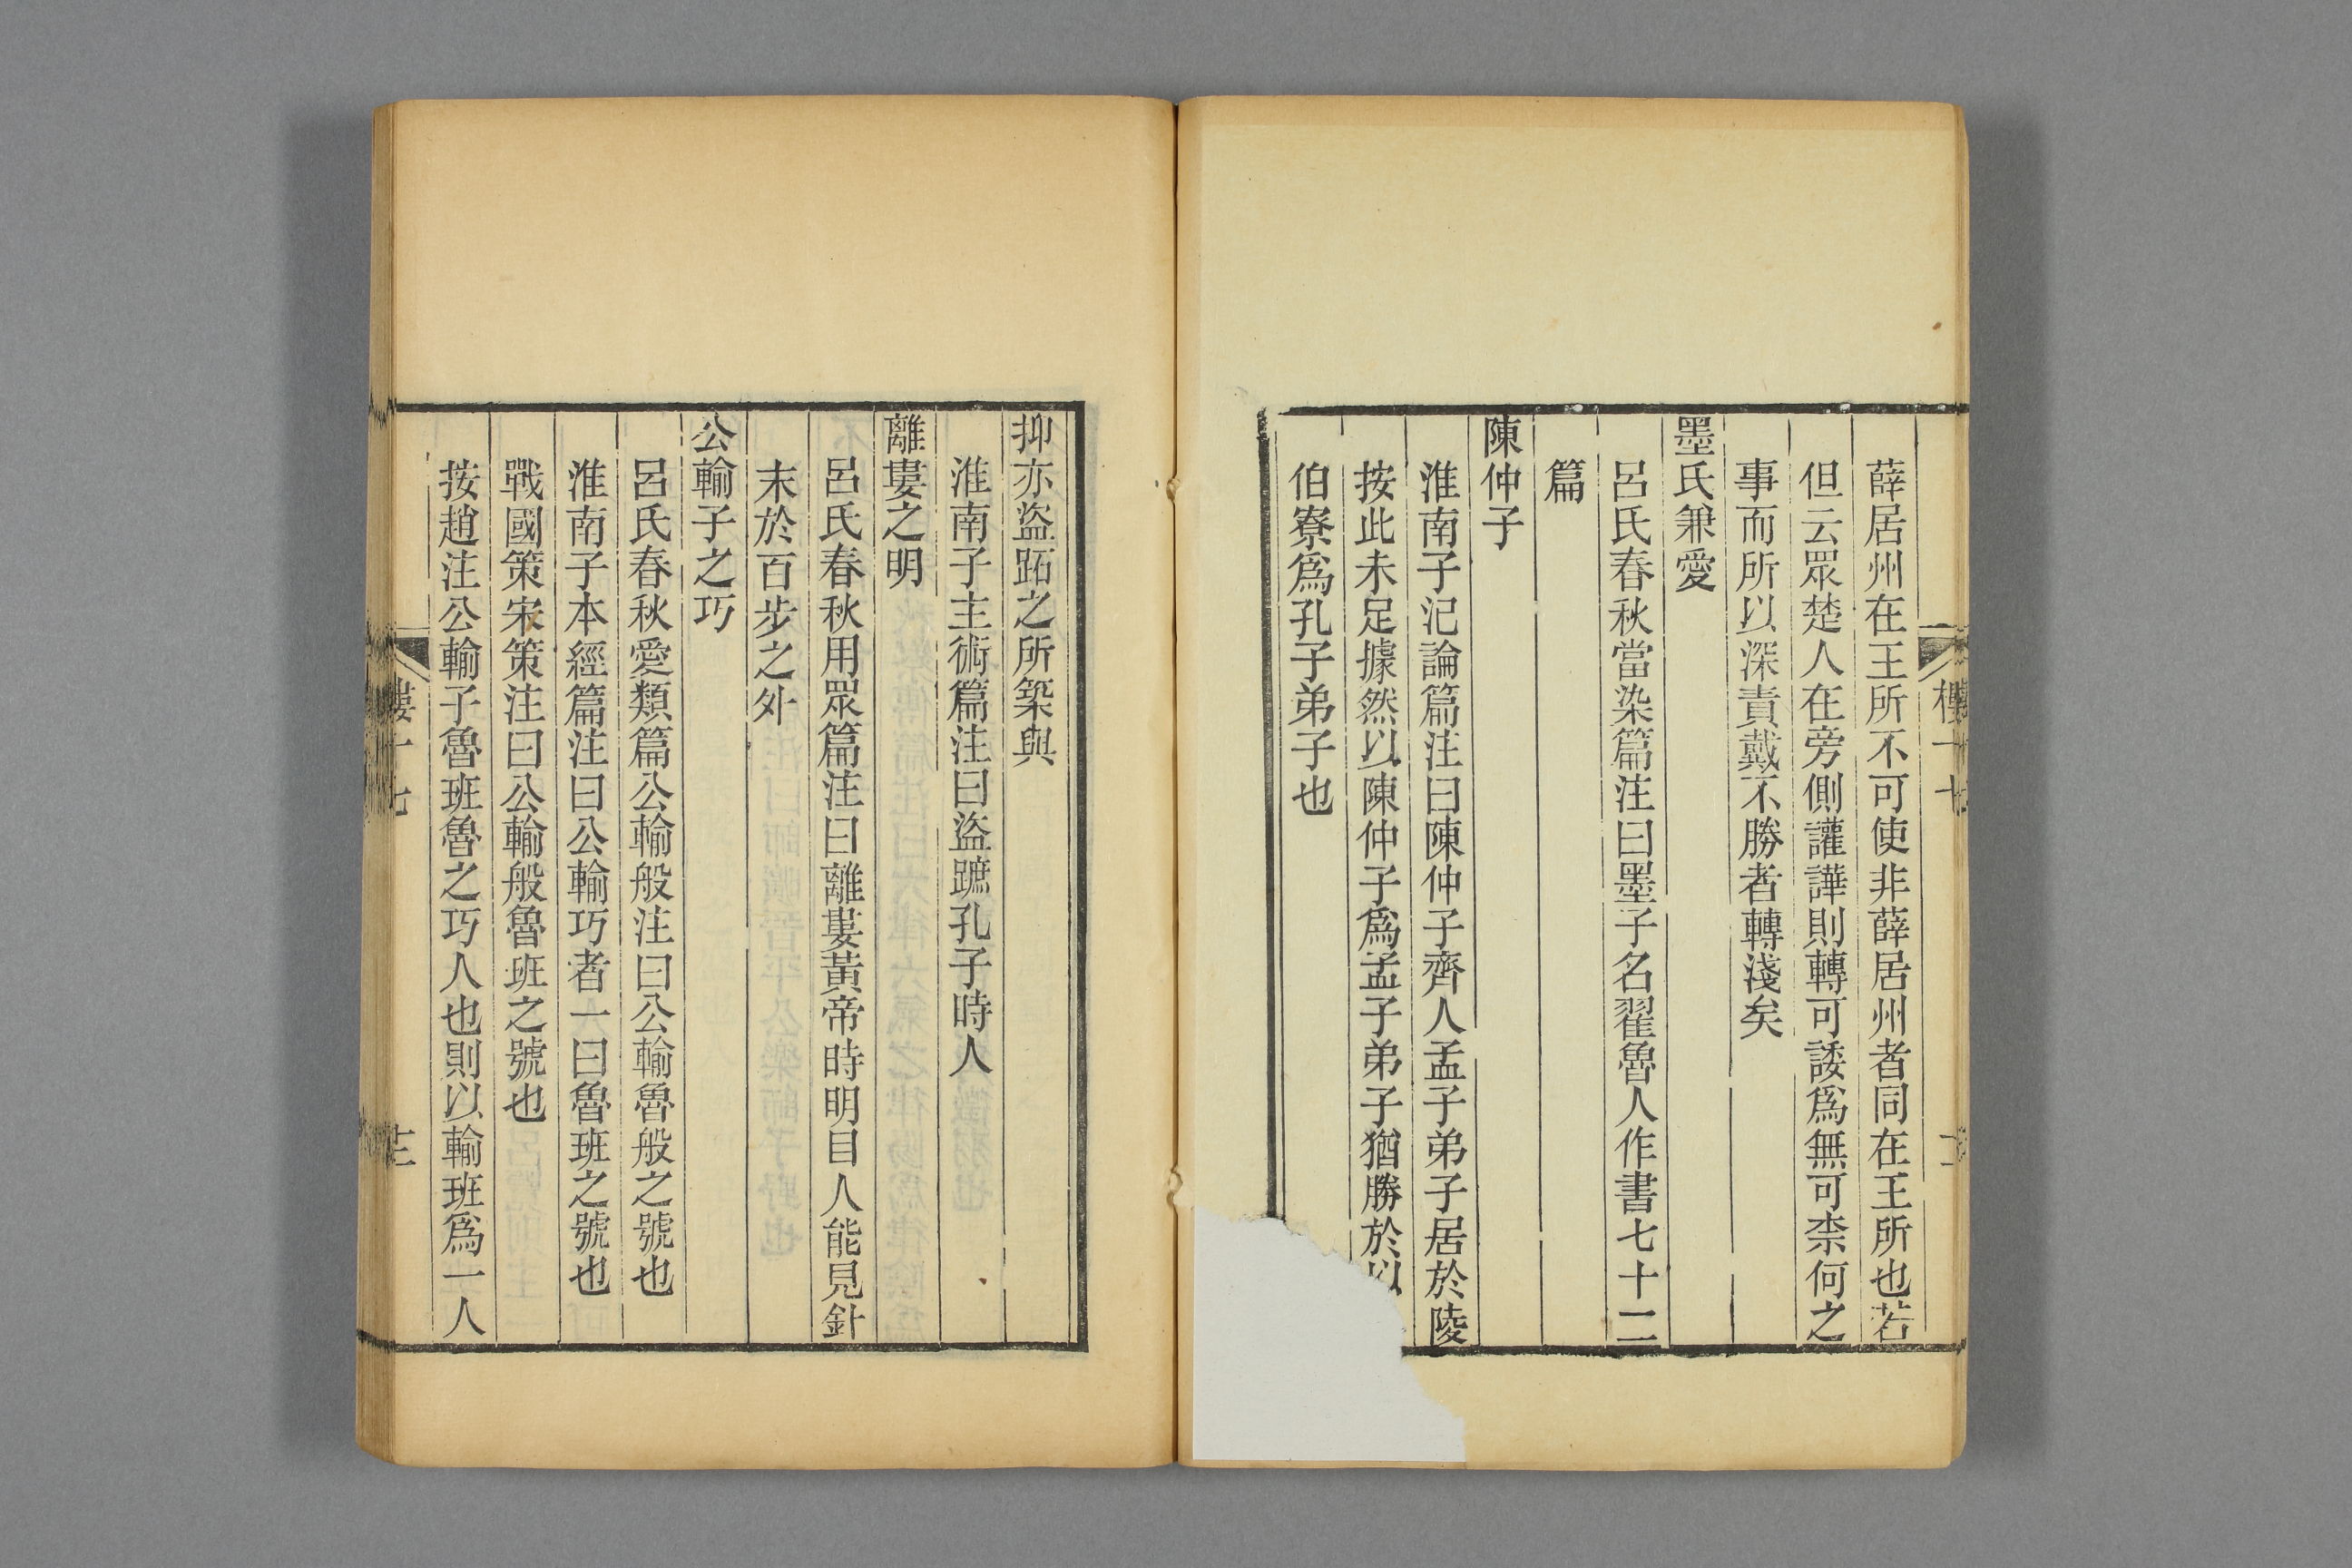 薛居州在王所不可使非薛居州者同在王所也若
但云眾楚人在旁側讙譁則轉可諉爲無可柰何之
事而所以深責戴不勝者轉淺矣
墨氏兼愛
呂氏春秋當染篇注曰墨子名翟魯人作書七十二
篇
陳仲子
淮南子氾論篇注曰陳仲子齊人孟子弟子居於陵
按此未足據然以陳仲子爲孟子弟子猶勝於以
伯寮爲孔子弟子也
抑亦盜跖之所築與
淮南子主術篇注曰盜蹠孔子時人
離婁之明
呂氏春秋用眾篇注曰離婁黃帝時明目人能見針
末於百步之外
公輸子之巧
呂氏春秋愛類篇公輸般注曰公輸魯般之號也
淮南子本經篇注曰公輸巧者一曰魯班之號也
戰國策宋策注曰公輸般魯班之號也
按趙注公輸子魯班魯之巧人也則以輸班爲一人